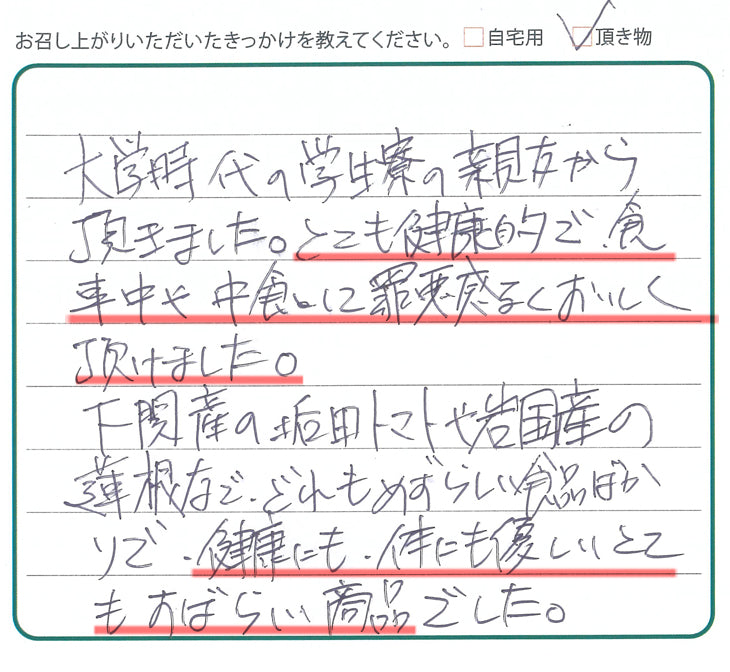 お召し上がりいただいたきっかけを教えてください。 □自宅用 ☑頂き物
大学時代の学生寮の親友から
頂きました。とても健康的で、食
事中や中食に罪悪感なくおいしく
頂けました。
下関産の垢田トマトや岩国産の
蓮根など、どれもめずらしい食品ばか
りで、健康にも、体にも優しいとて
もすばらしい商品でした。